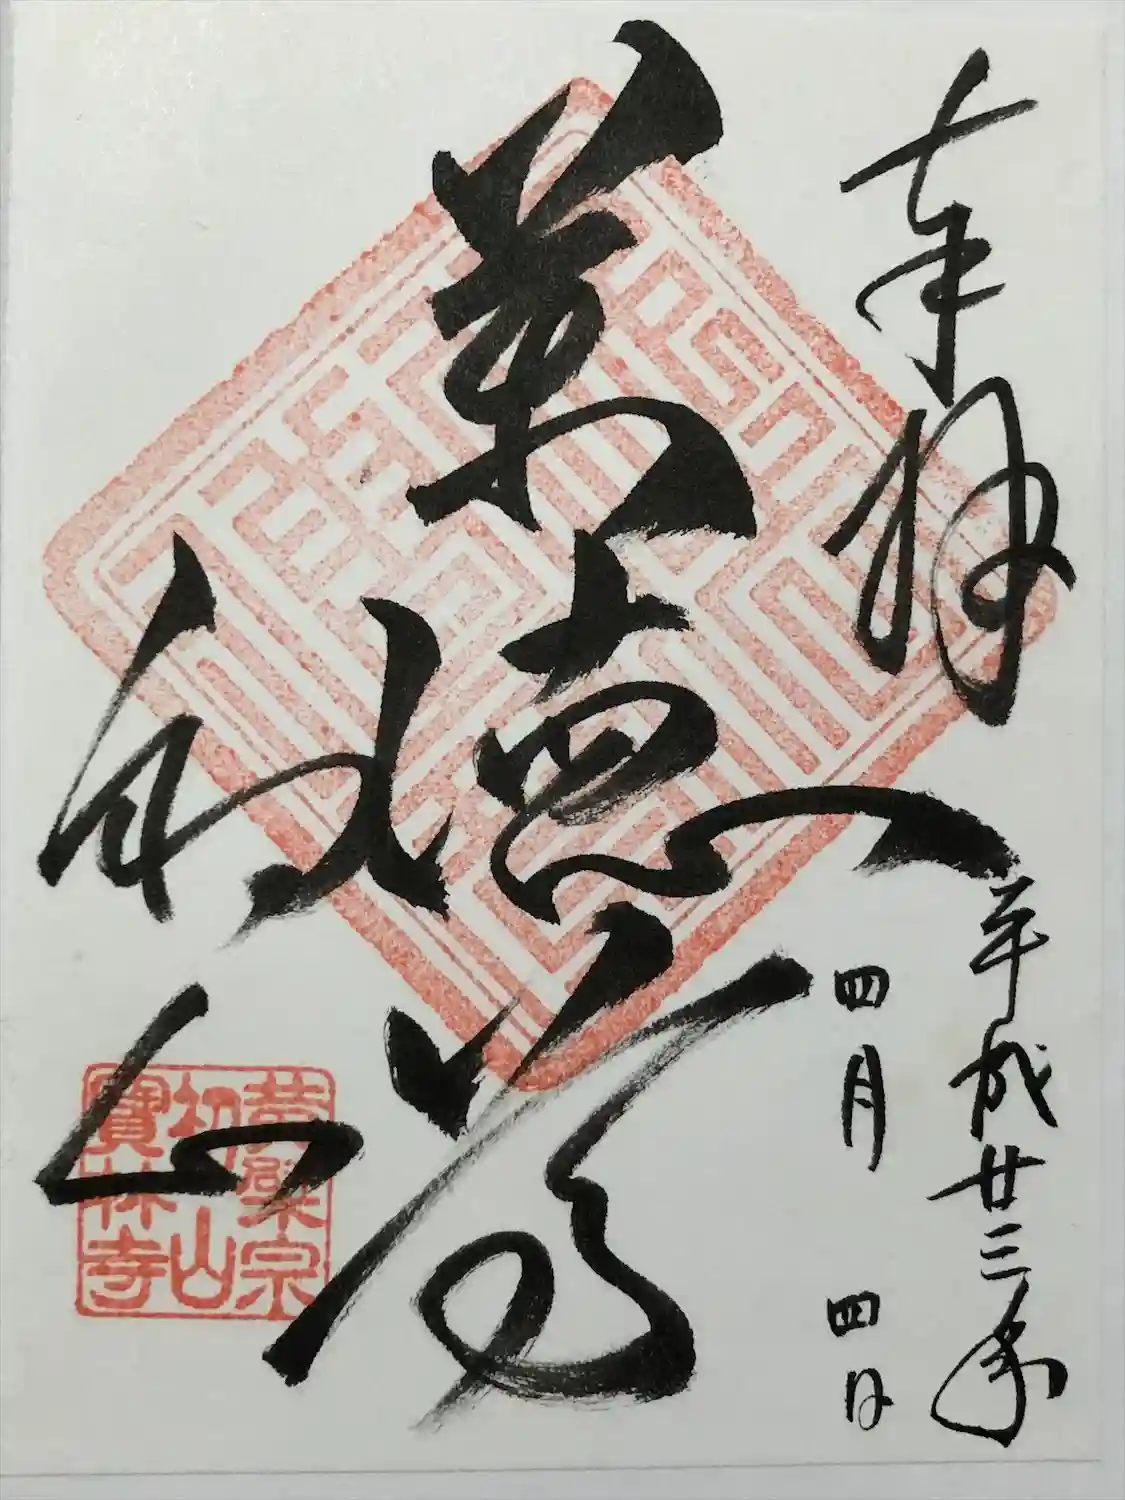 奉拝
平成廿三年
四月四日
萬徳尊
初山
黄檗宗
初山
寶林寺